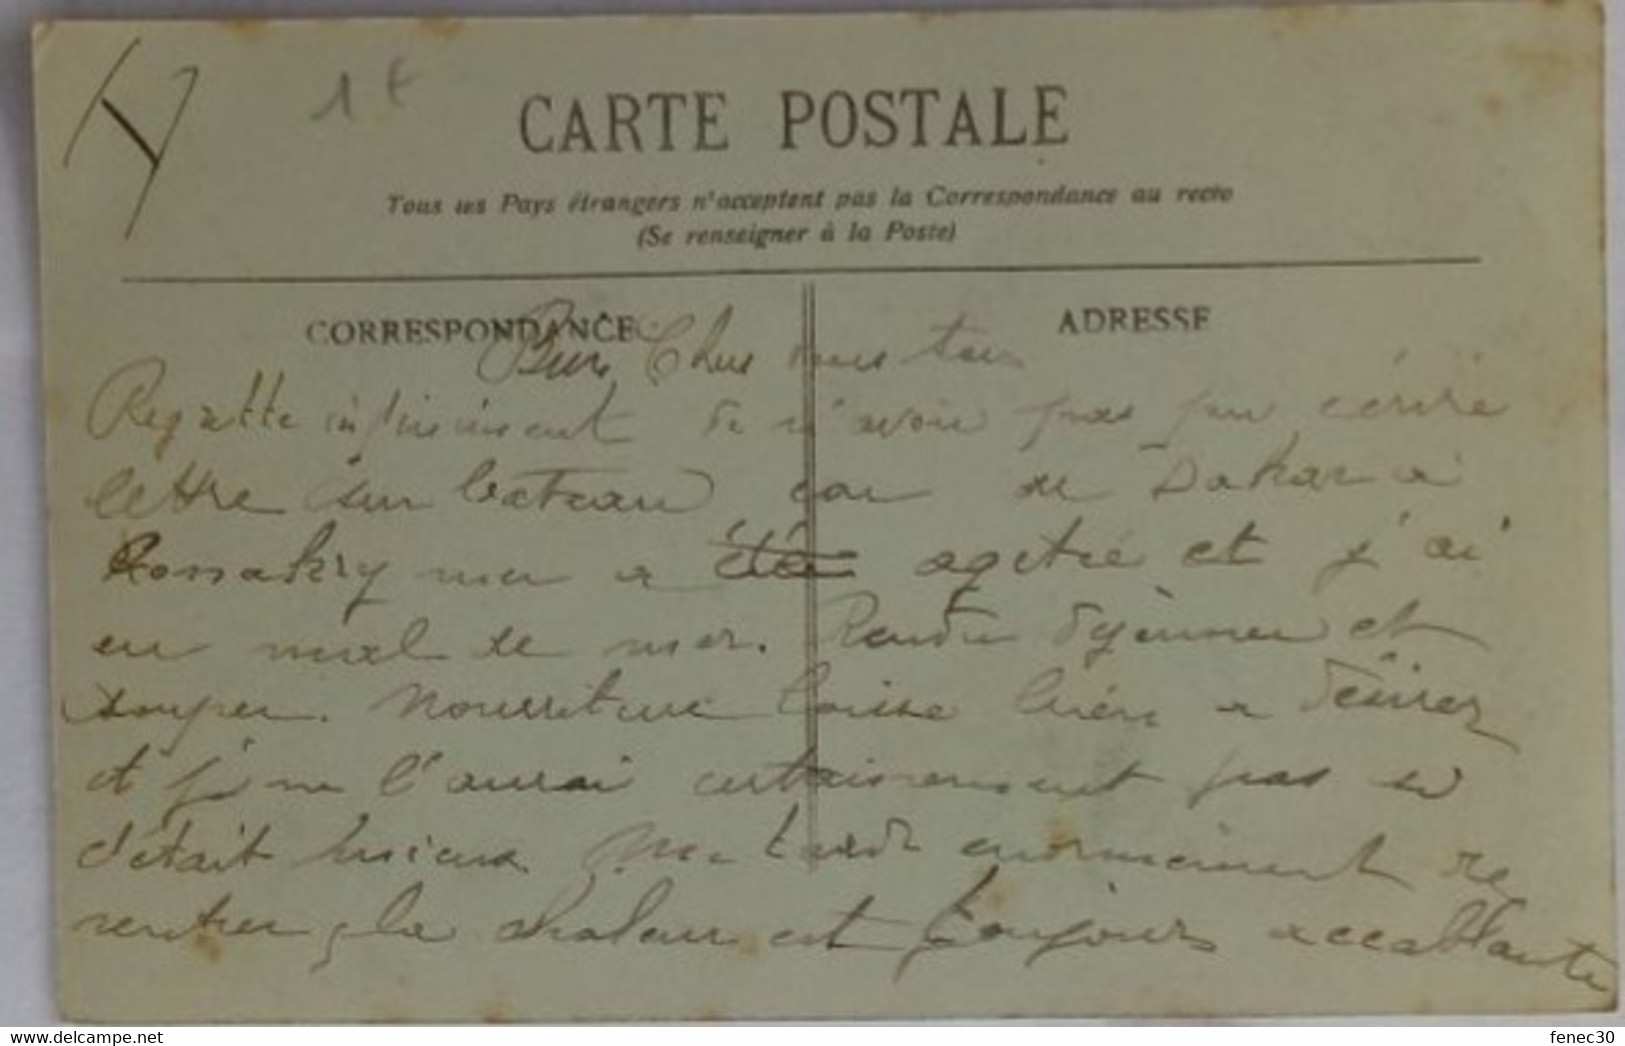 1 t
CARTE POSTALE
Tous les Pays étrangers n'acceptent pas la Correspondance au recto
(Se renseigner à la Poste)
CORRESPONDANCE
ADRESSE
Bien Chers
Regrette infiniment de n'avoir pas pu écrire
lettre sur bateau car de Dakar à
Konnakry mer a été agitée et j'ai
eu mal de mer. Rendu déjeuner et
souper. Nourriture laisse bien a désirer
et je ne l'aurai certainement pas
c'était mieux. Me tarde enormement re
rentrer, la chaleur est toujours accablante
Delcampe.net
fenec30